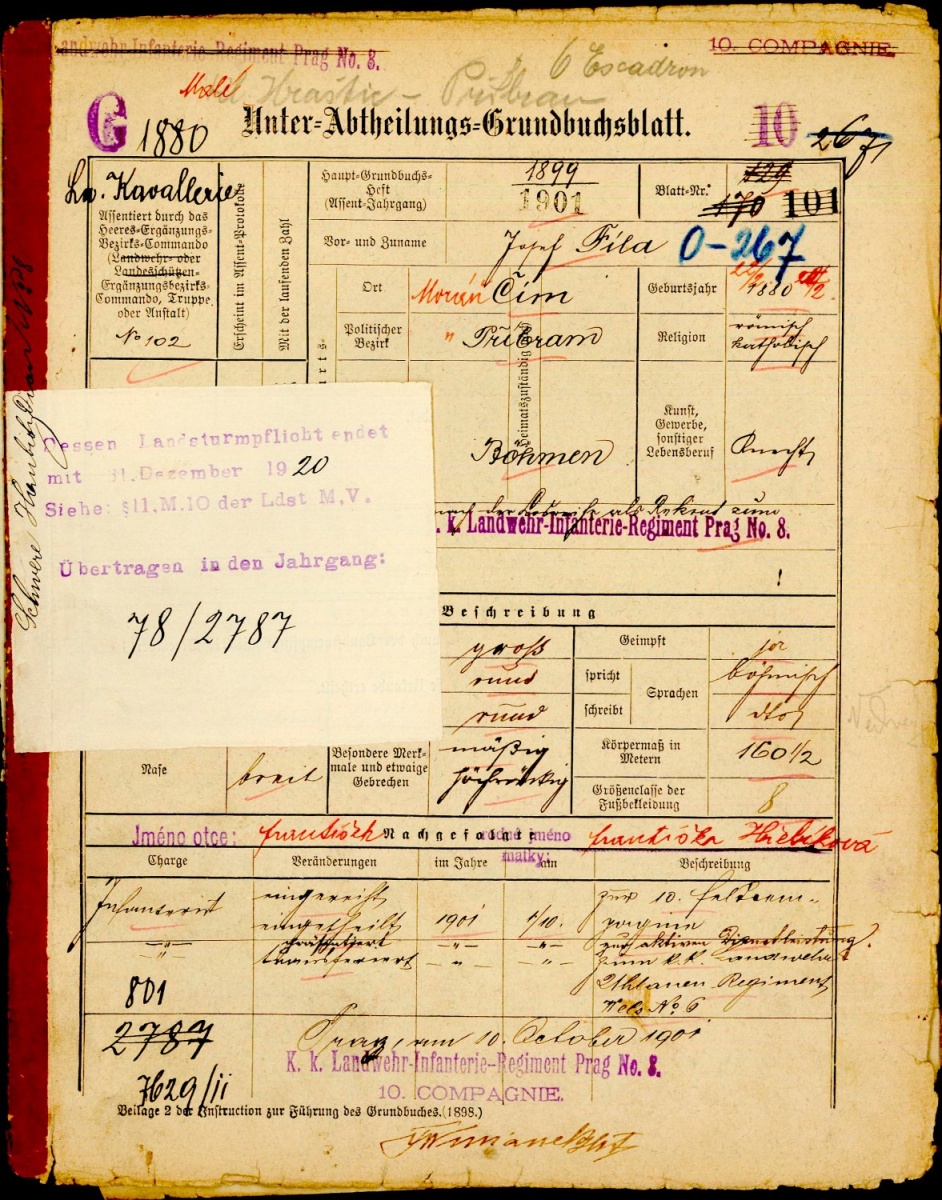 Landwehr-Infanterie-Regiment Prag No. 8.
10. COMPAGNIE.
6 Escadron
Malé Hraštic – Přibram
G 1880
Unter-Abtheilungs-Grundbuchsblatt.
10 267
Lw. Kavallerie
Assentiert durch das Heeres-Ergänzungs-Bezirks-Commando (Landwehr- oder Landesschützen-Ergänzungsbezirks-Commando, Truppe oder Anstalt)
No 102
Erscheint im Assent-Protokolle
Mit der laufenden Zahl
Haupt-Grundbuchs-Heft (Assent-Jahrgang)
1899
1901
Blatt-Nr.
129
170 101
Vor- und Zuname
Josef Fíla
0-267
Ort
Čím
Geburtsjahr
1880
Politischer Bezirk
" Příbram
Religion
römisch katholisch
Heimatszuständig
Böhmen
Kunst, Gewerbe, sonstiger Lebensberuf
Knecht
als Rekrut zum
k. Landwehr-Infanterie-Regiment Prag No. 8.
Dessen Landsturmpflicht endet
mit 31.Dezember 1920
Siehe: §11,M.10 der Ldst M,V.
Übertragen in den Jahrgang:
78/2787
Beschreibung
groß
rund
rund
Geimpft
ja
spricht
schreibt
Sprachen
böhmisch
dto
Nase
breit
Besondere Merkmale und etwaige Gebrechen
mäßig
Körpermaß in Metern
160 1/2
Größenclasse der Fußbekleidung
8
Jméno otce:
František
Nachgefolgte
rodné jméno matky:
Františka Hřebíková
Charge
Veränderungen
im Jahre
am
Beschreibung
Infanterist
eingereiht
eingetheilt
1901
1/10.
zur 10. Feldcompagnie
präsentiert
zur aktiven Dienstleistung
transferiert
zum k.k. Landwehr
Uhlanen Regiment
Wels No 6
801
2787
Prag, am 10. October 1901
K. k. Landwehr-Infanterie-Regiment Prag No. 8.
7629/II
10. COMPAGNIE.
Beilage 2 der Instruction zur Führung des Grundbuches.(1898.)